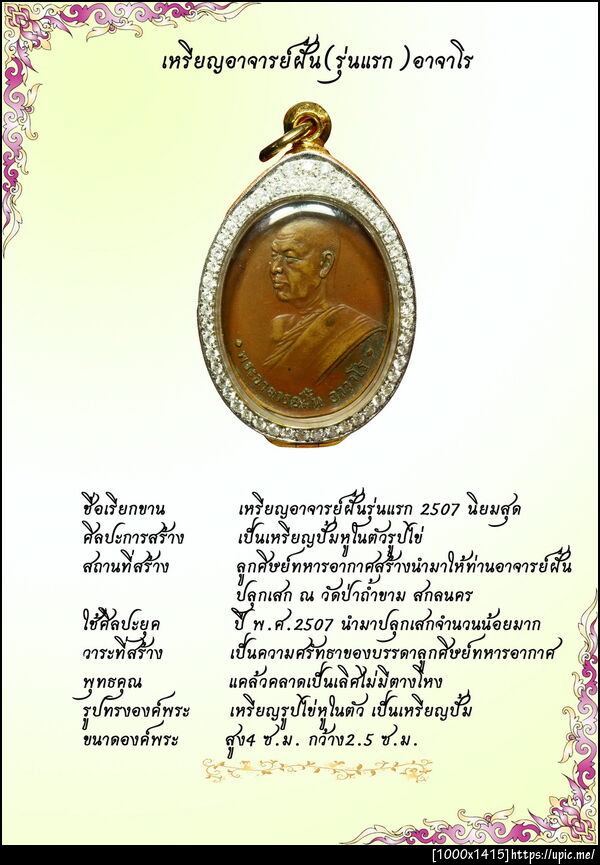 เหรียญอาจารย์ฝั้น(รุ่นแรก )อาจาโร
พระอาจารย์ฝั้น อาจาโร
ชื่อเรียกขาน เหรียญอาจารย์ฝั้นรุ่นแรก 2507 นิยมสุด
ศิลปะการสร้าง เป็นเหรียญปั้มหูในตัวรูปไข่
สถานที่สร้าง ลูกศิษย์ทหารอากาศสร้างนำมาให้ท่านอาจารย์ฝั้น
ปลุกเสก ณ วัดป่าถ้ำขาม สกลนคร
ใช้ศิลปะยุค ปี พ.ศ.2507 นำมาปลุกเสกจำนวนน้อยมาก
วาระที่สร้าง เป็นความศรัทธาของบรรดาลูกศิษย์ทหารอากาศ
พุทธคุณ แคล้วคลาดเป็นเลิศไม่มีตายโหง
รูปทรงองค์พระ เหรียญรูปไข่หูในตัว เป็นเหรียญปั้ม
ขนาดองค์พระ สูง4 ซ.ม. กว้าง2.5 ซ.ม.
[1000x1415]https://upic.me/